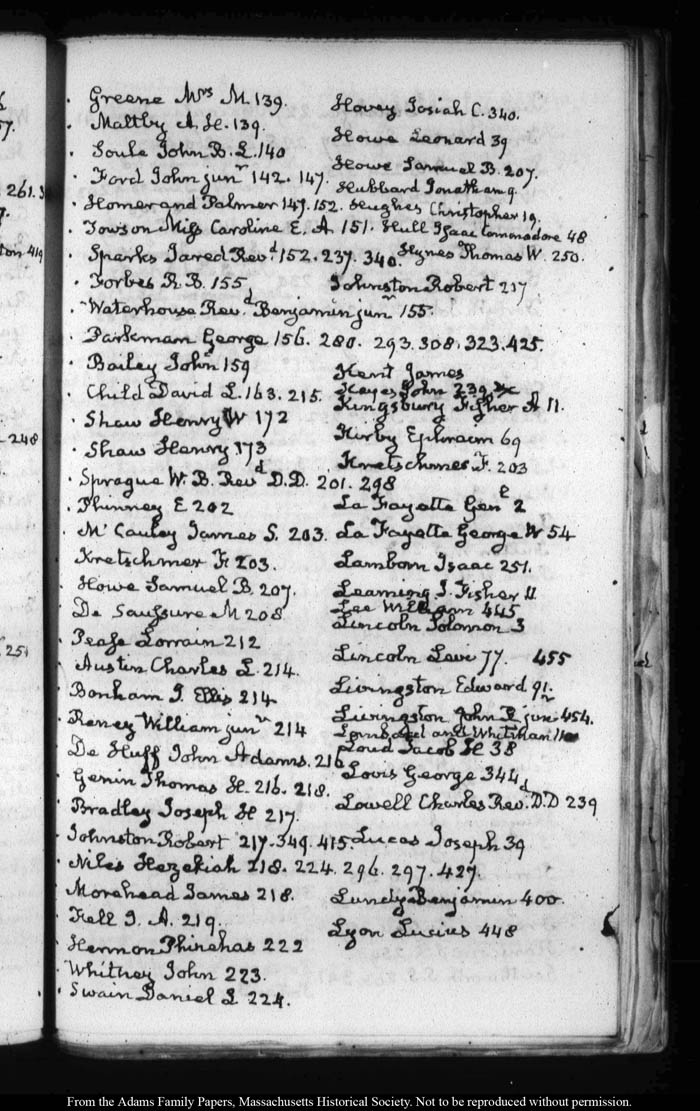 Greene Mrs M. 139.
Maltby A. H. 139.
Soule John B. L. 140
Ford John junr 142. 147.
Homer and Palmer 147. 152.
Towson Miss Caroline E. A. 151.
Sparks Jared Revd. 152. 237. 340.
Forbes R. B. 155
Waterhouse Revd. Benjamin junr 155.
Parkman George 156. 280. 293. 308. 323. 425.
Bailey John 159
Child David L. 163. 215.
Shaw Henry W 172
Shaw Henry 173
Sprague W. B. Revd D.D. 201. 298
Phinney E 202
McCauley James S. 203.
Kretschmer F. 203.
Howe Samuel B. 207.
De Saussure M 208
Pease Lorrain 212
Austin Charles L. 214.
Bonham J. Ellis 214
Reney William junr 214
De Huff John Adams. 216
Genin Thomas H. 216. 218.
Bradley Joseph H 217.
Johnston Robert 217. 349. 415
Niles Hezekiah 218. 224. 296. 297. 427.
Morehead James 218.
Fell J. A. 219.
Hermon Phinehas 222
Whitney John 223.
Swain Daniel L 224.
Hovey Josiah C. 340.
Howe Leonard 39
Howe Samuel B. 207.
Hubbard Jonathan 9.
Hughes Christopher 19.
Hull Isaac Commodore 48
Hynes Thomas W. 250.
Johnston Robert 217
Kent James
Keyes John 239
Kingsbury Fisher A 11.
Kirby Ephraim 69
Kretschmer F. 203
La Fayette Genl 2
La Fayette George W 54
Lamborn Isaac 251.
Leaming J. Fisher 11
Lee William 445
Lincoln Solomon 3
Lincoln Levi 77. 455
Livingston Edward 91.
Livingston John R junr 454.
and Whitman
Loud Jacob H 38
Lovis George 344
Lowell Charles Revd. D.D 239
Lucas Joseph 39
Lundy Benjamin 400.
Lyon Lucius 448
57.
261.3
ton 419
248
251
From the Adams Family Papers, Massachusetts Historical Society. Not to be reproduced without permission.